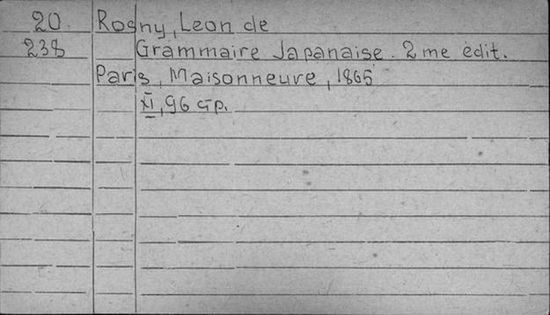 20. Rosny, Leon de
238 Grammaire Japanaise. 2 me edit.
Paris, Maisonneuve, 1865
XI, 96 стр.